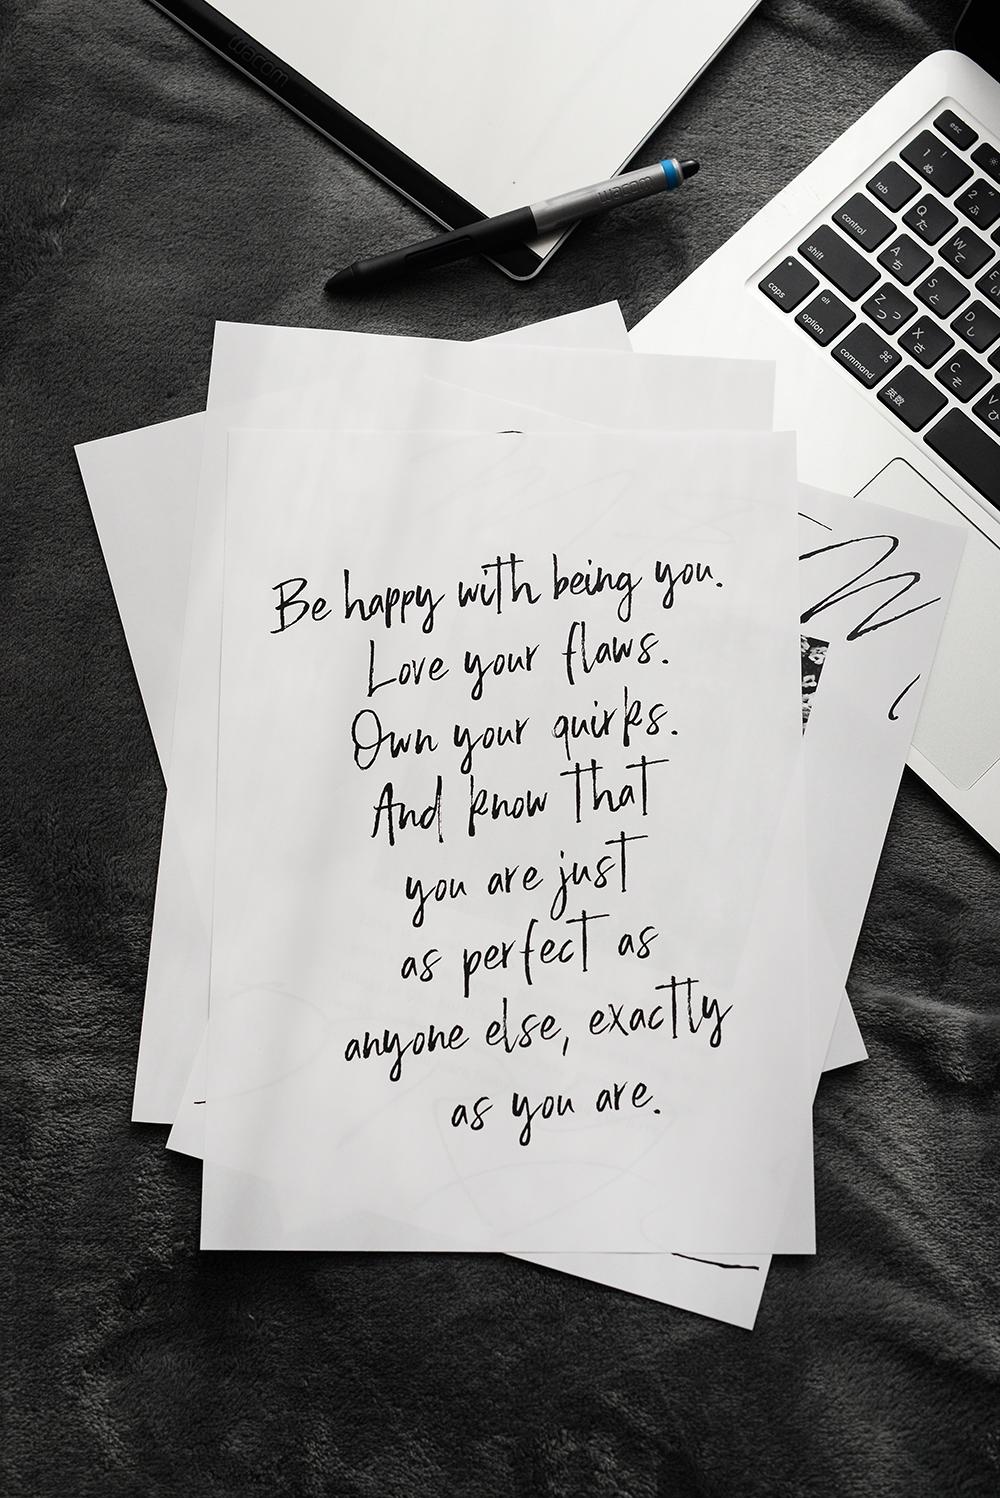 wacom
wacom
esc
1 !
ぬ
2 "
ふ
tab
Q
た
W
て
E
い
control
A
ち
S
と
D
し
shift
Z
つ っ
X
さ
C
そ
V
ひ
caps
alt
option
⌘
command
英数
Be happy with being you.
Love your flaws.
Own your quirks.
And know that
you are just
as perfect as
anyone else, exactly
as you are.